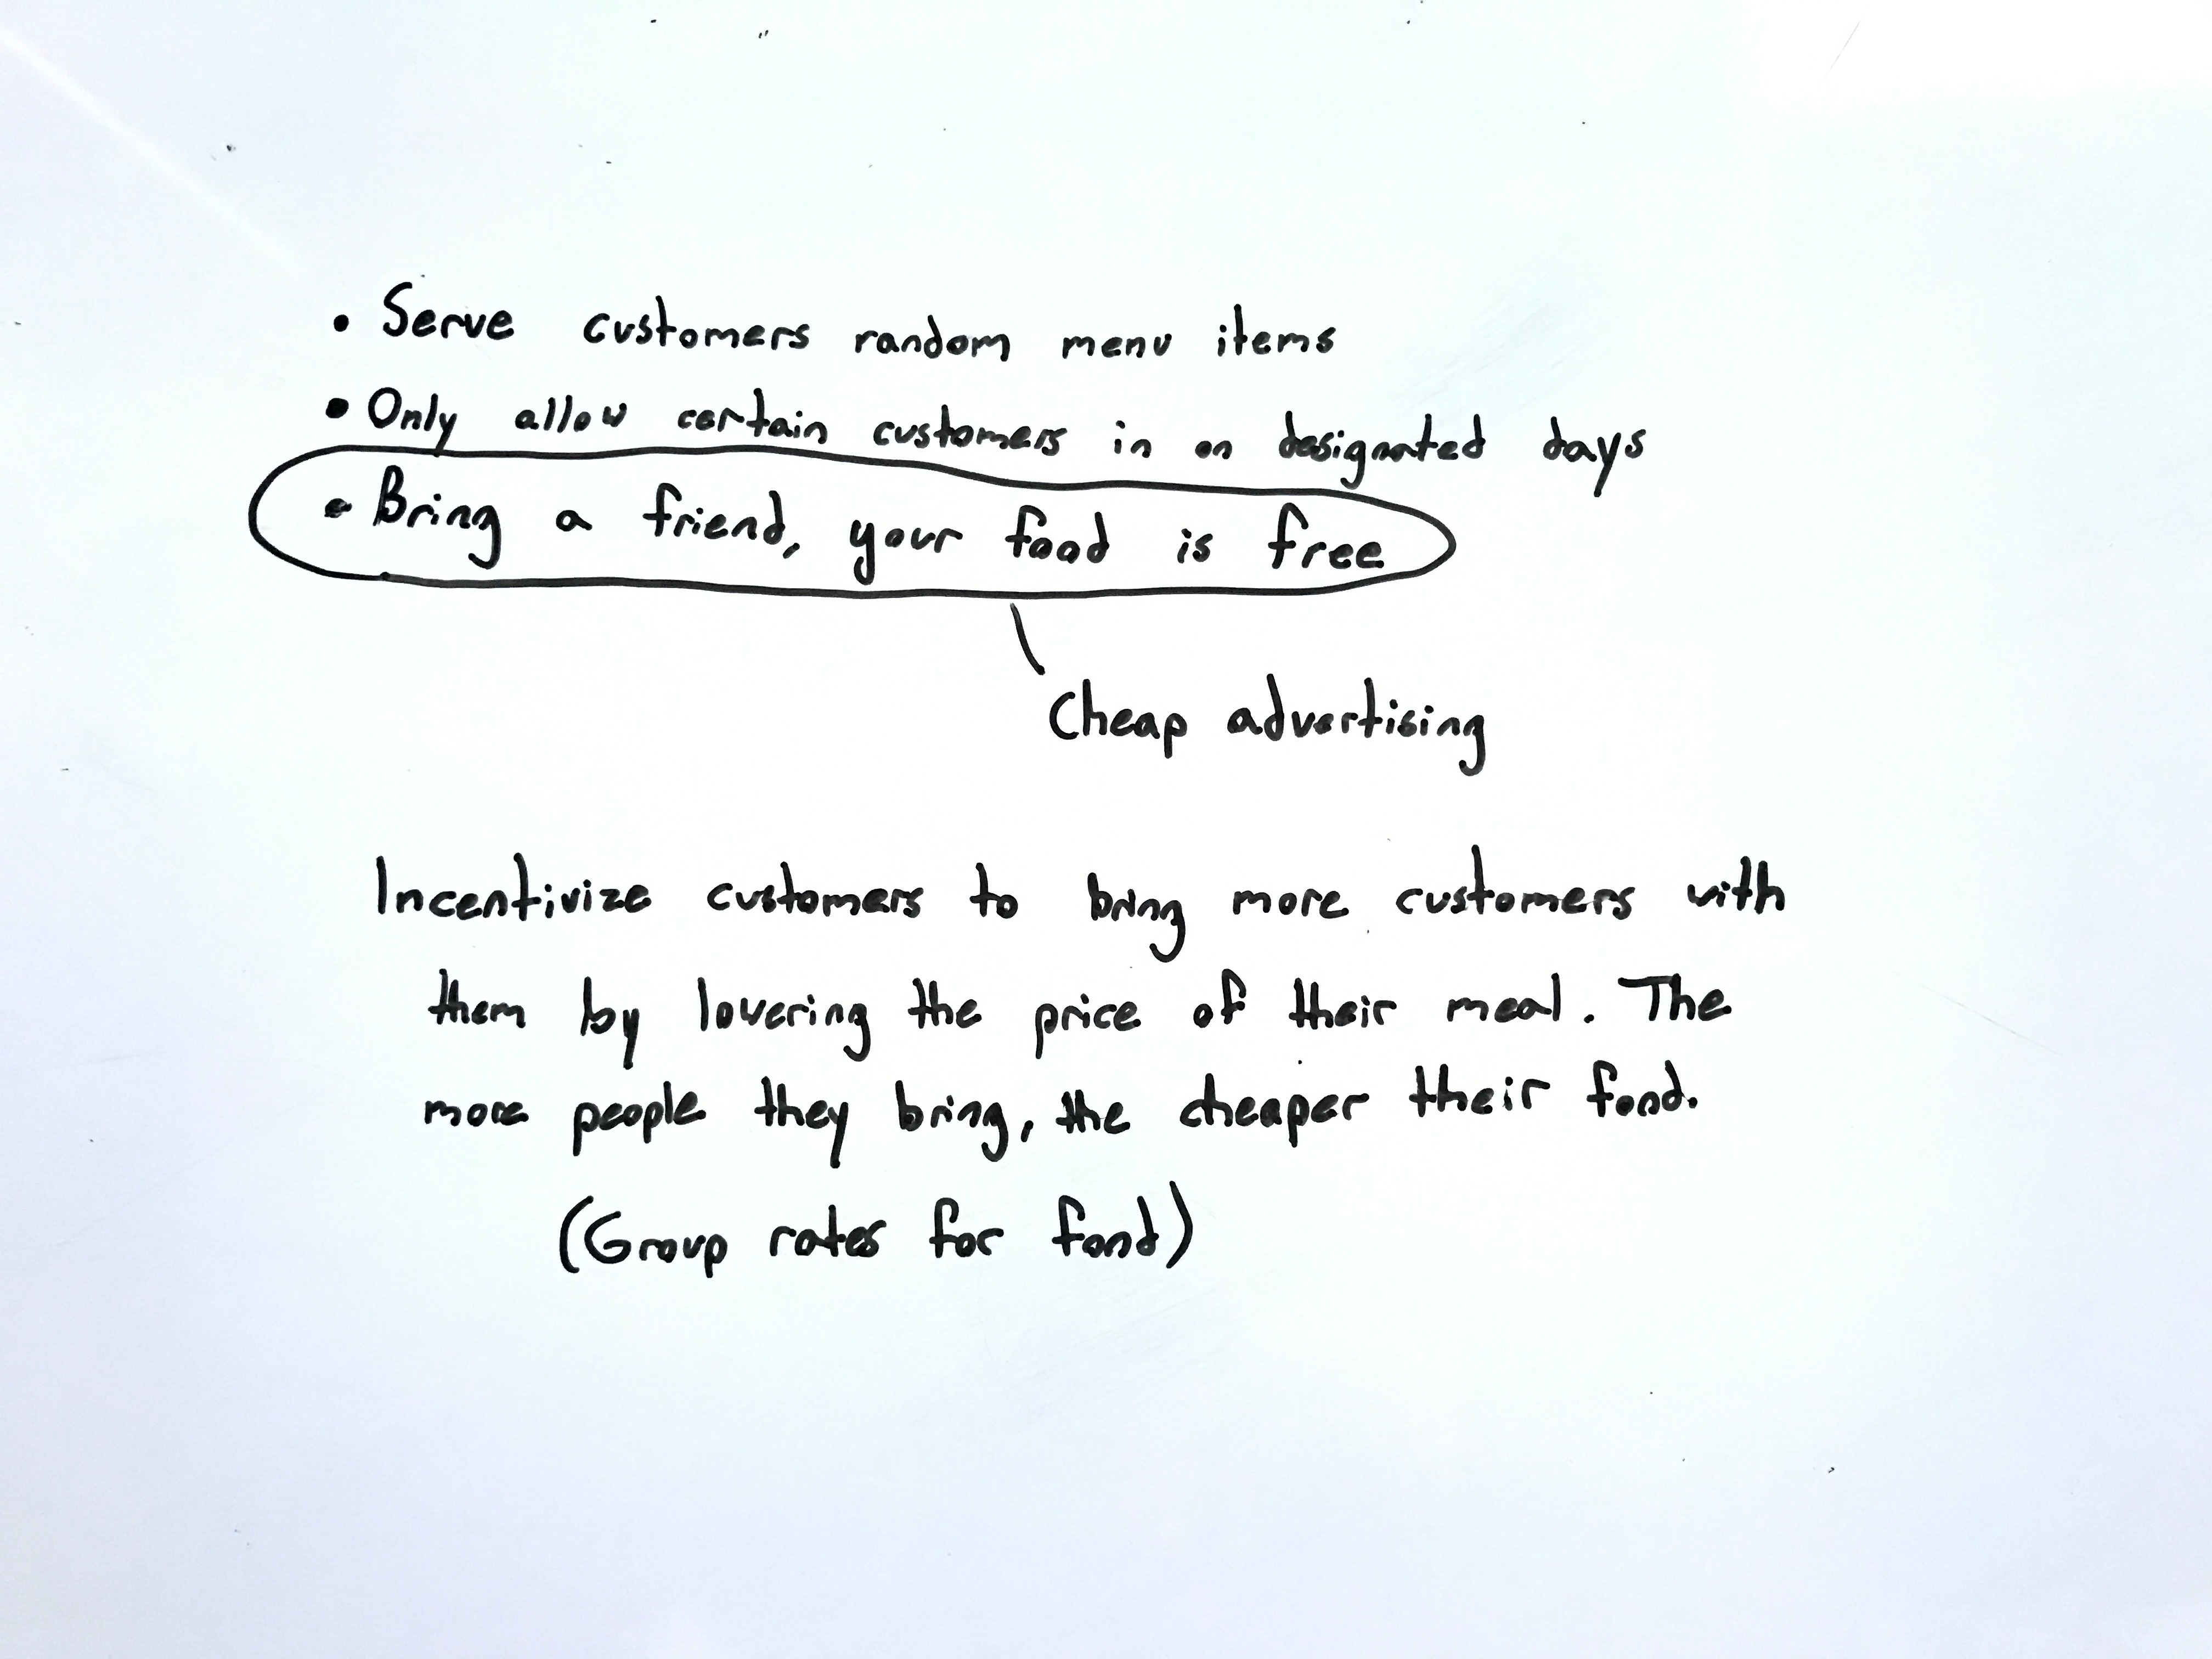 • Serve customers random menu items
• Only allow certain customers in on designated days
• Bring a friend, your food is free
Cheap advertising
Incentivize customers to bring more customers with
them by lowering the price of their meal. The
more people they bring, the cheaper their food.
(Group rates for food)